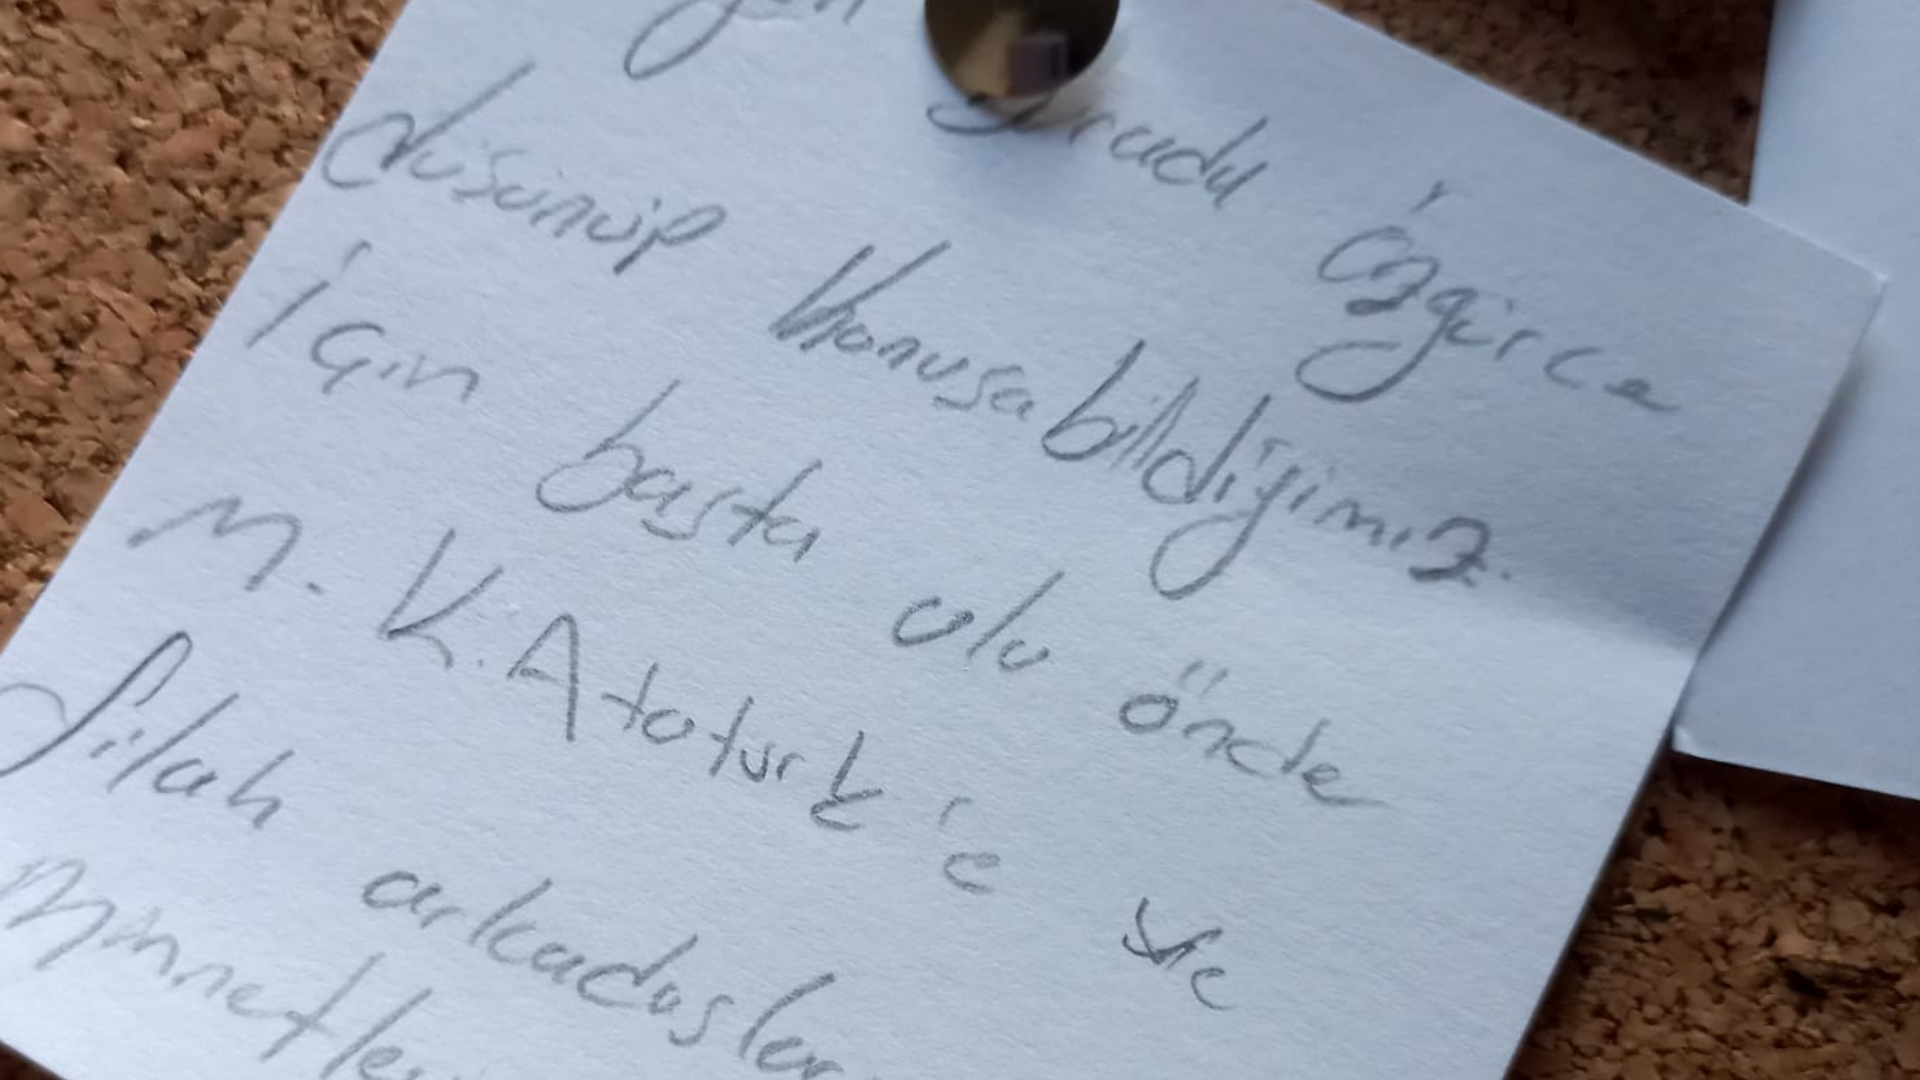 özgürce
düşünüp konuşabildiğimiz
için başta ulu önder
M. K. Atatürk'e ve
silah arkadaşlar
minnetle